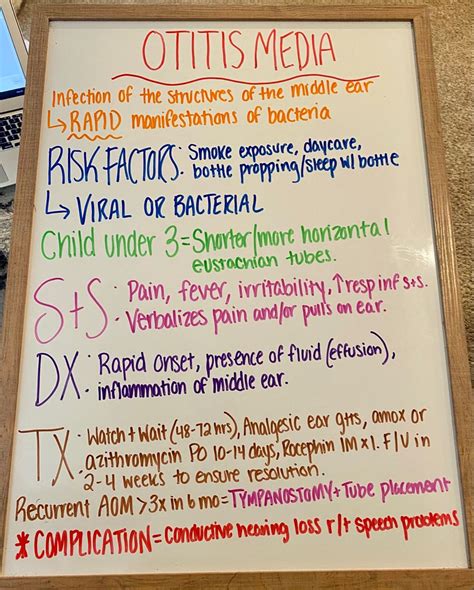 OTITIS MEDIA
Infection of the structures of the middle ear
↳RAPID manifestations of bacteria
RISK FACTORS: Smoke exposure, daycare,
bottle propping/sleep w/ bottle
↳ VIRAL OR BACTERIAL
Child under 3=Shorter/more horizontal
eustachian tubes.
S+S: Pain, fever, irritability, ↑resp inf s+s.
Verbalizes pain and/or pulls on ear.
DX: Rapid onset, presence of fluid (effusion),
inflammation of middle ear.
TX: Watch + Wait (48-72 hrs), Analgesic ear gtts, amox or
azithromycin PO 10-14 days, Rocephin IM x 1. F/U in
2-4 weeks to ensure resolution.
Recurrent AOM >3x in 6 mo=TYMPANOSTOMY+Tube placement
*COMPLICATION=Conductive hearing loss r/t speech problems